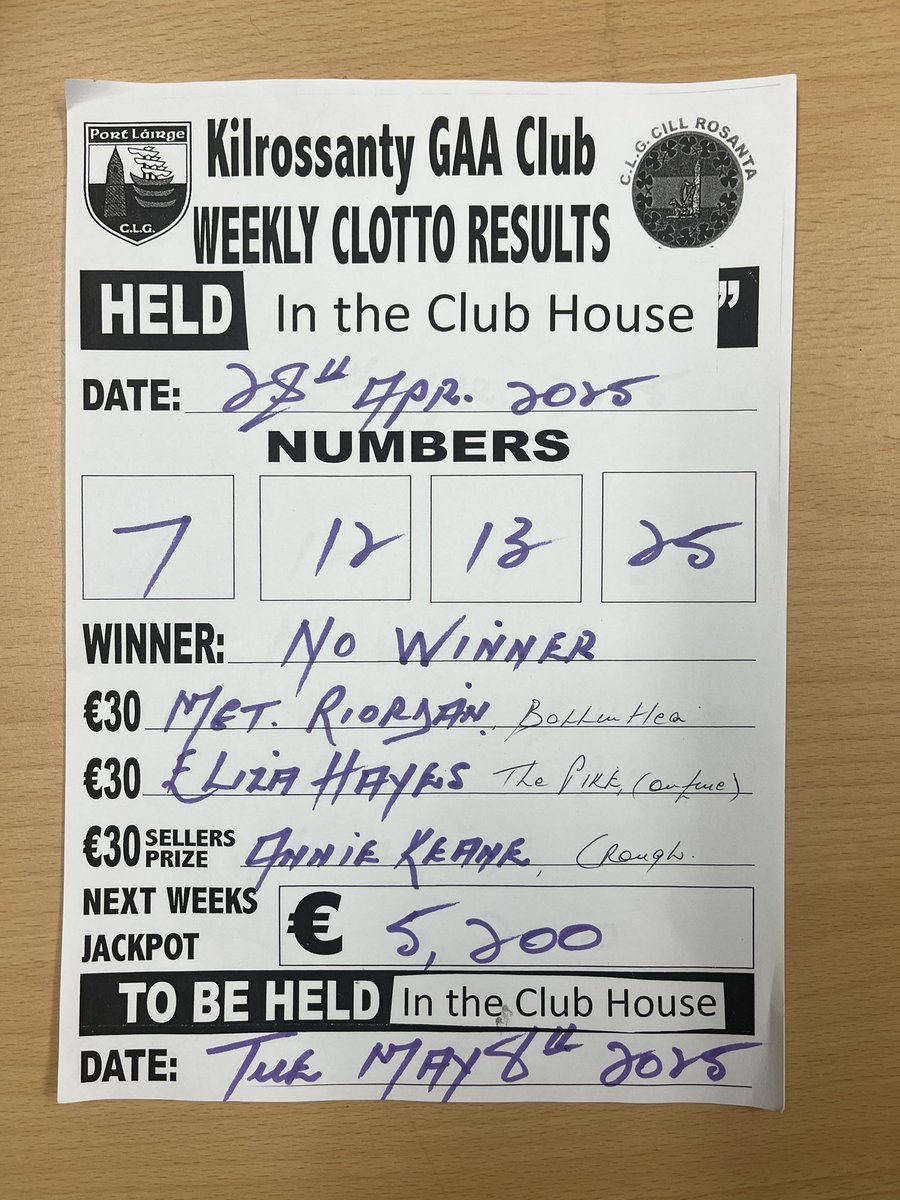 Port Láirge
C.L.G.
Kilrossanty GAA Club
C.L.G. CILL ROSANTA
WEEKLY CLOTTO RESULTS
HELD In the Club House "
DATE: 28th Apr. 2025
NUMBERS
7 12 13 25
WINNER: NO WINNER
€30 MET. RIORDAN,
€30 ELIZA HAYES The PIKE,
€30 SELLERS PRIZE ANNIE KEANE, Crough.
NEXT WEEKS JACKPOT € 5,200
TO BE HELD In the Club House
DATE: Tue MAY 8th 2025